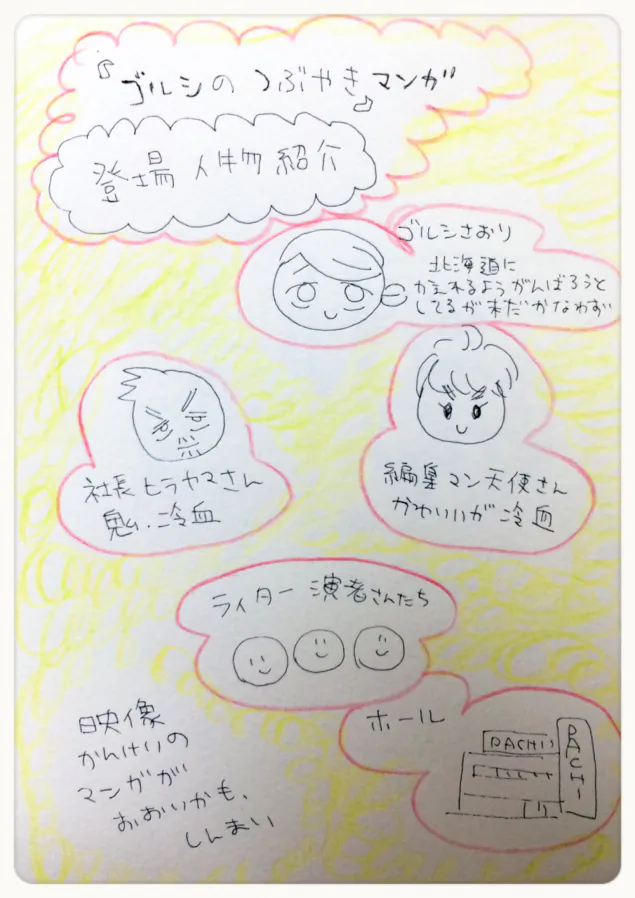 『ゴルシのつぶやきマンガ』
登場人物紹介
ゴルシさおり
北海道に
かえれるようがんばろうと
してるが未だかなわず
社長ヒラヤマさん
鬼、冷血
編集マン天使さん
かわいいが冷血
ライター演者さんたち
ホール
PACHI
PACHI
映像
かんけいの
マンガが
おおいかも、
しんまい